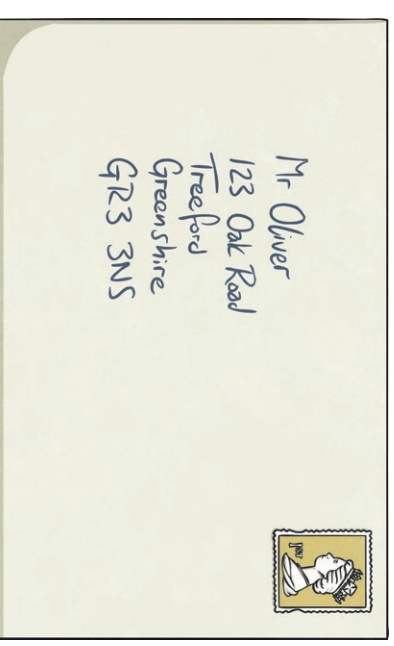 Mr Oliver
123 Oak Road
Treeford
Greenshire
GR3 3NS
1ST